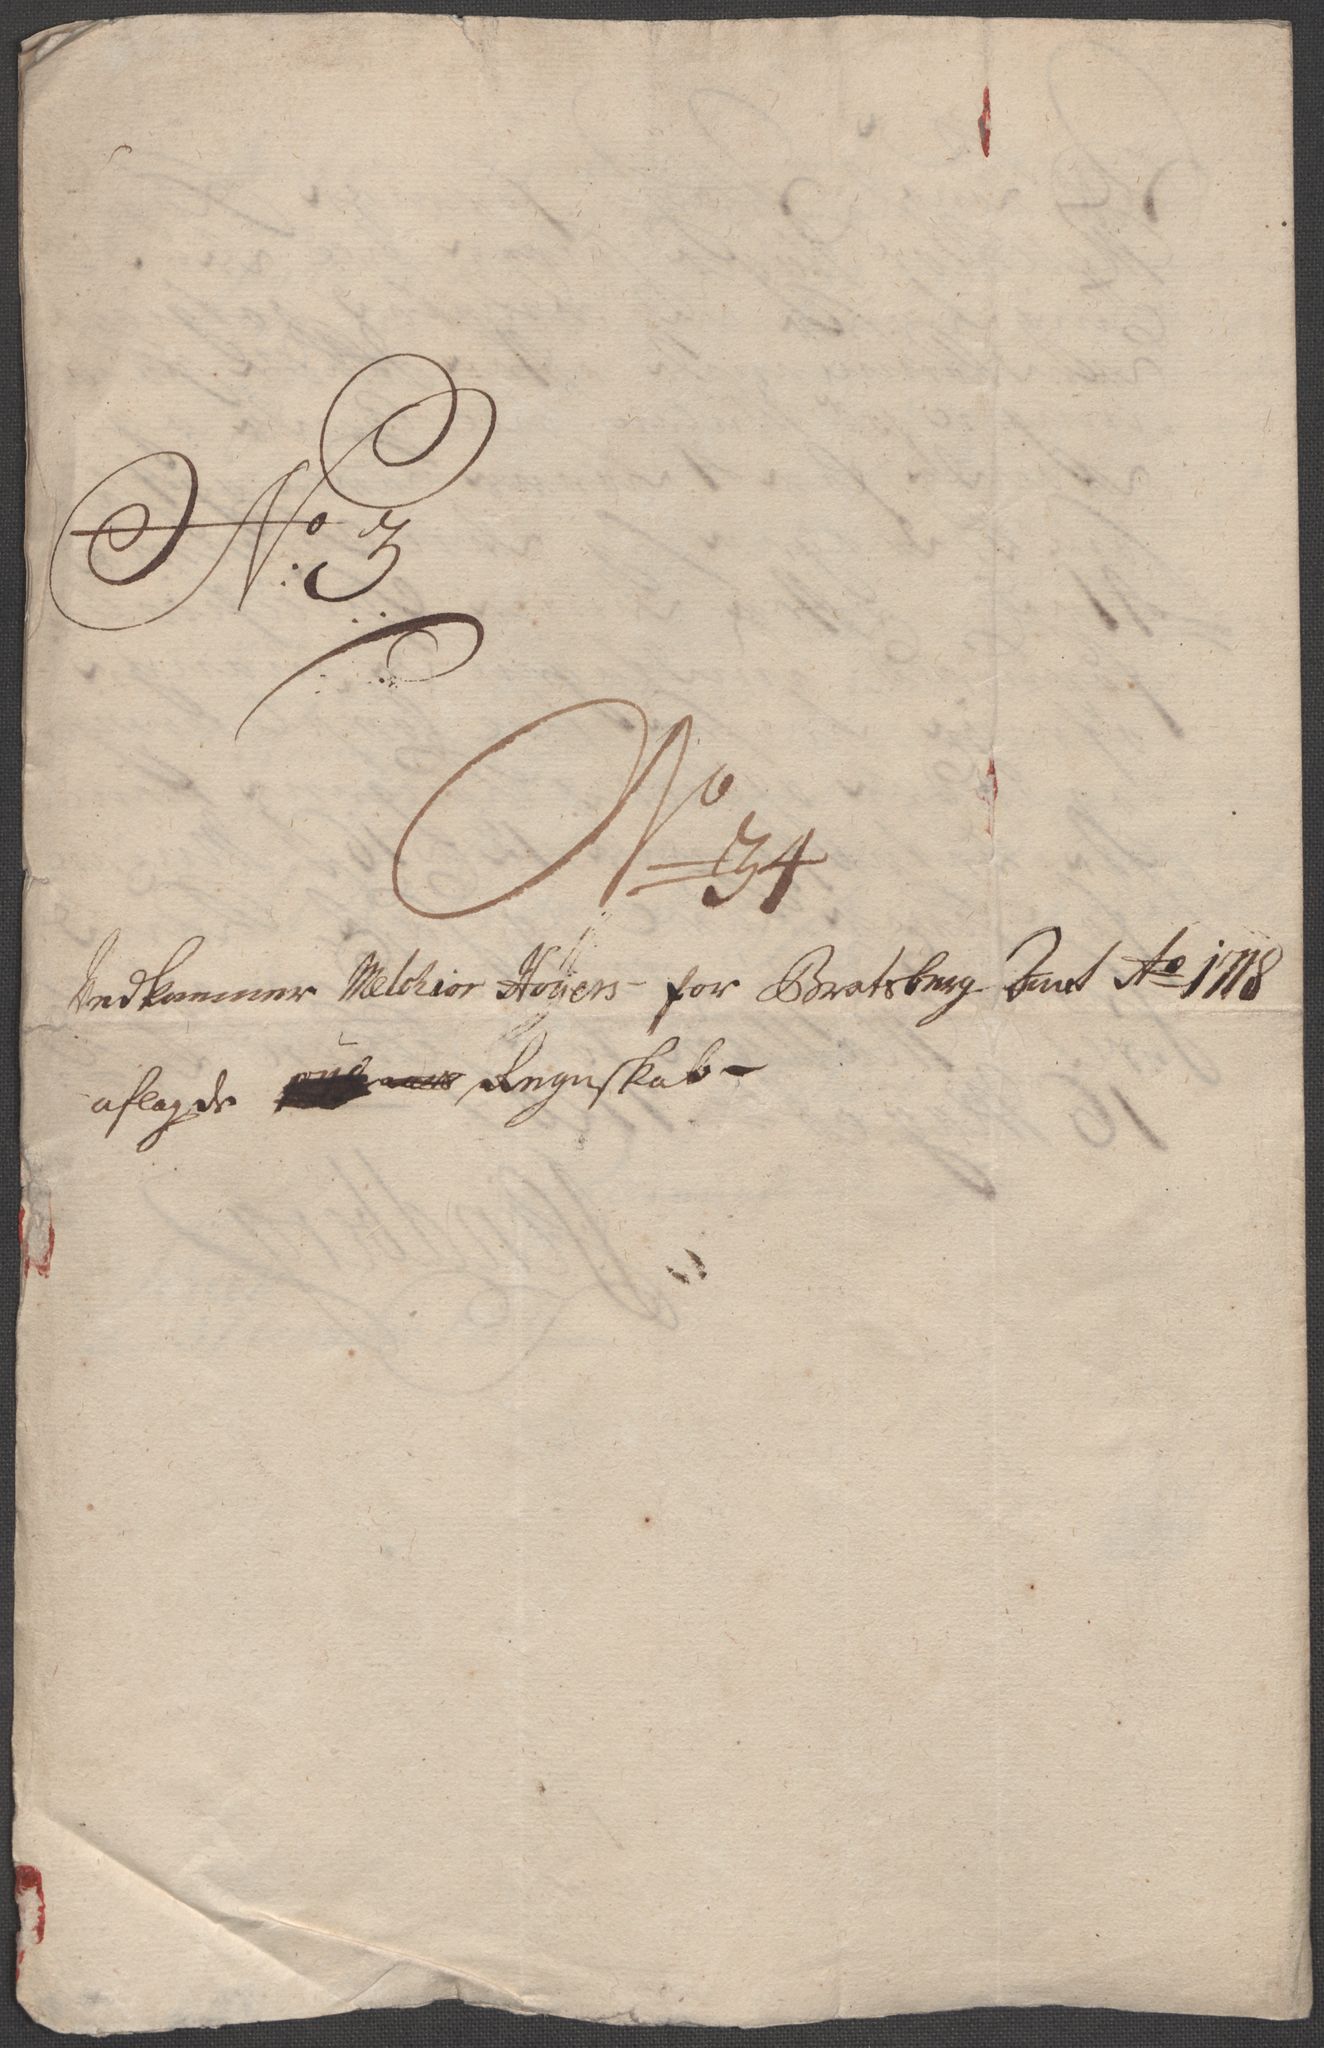 No: 3
No 34
Vedkommer Melchior Höyers for Bratsberg Amt Ao 1718
aflagde Regnskab